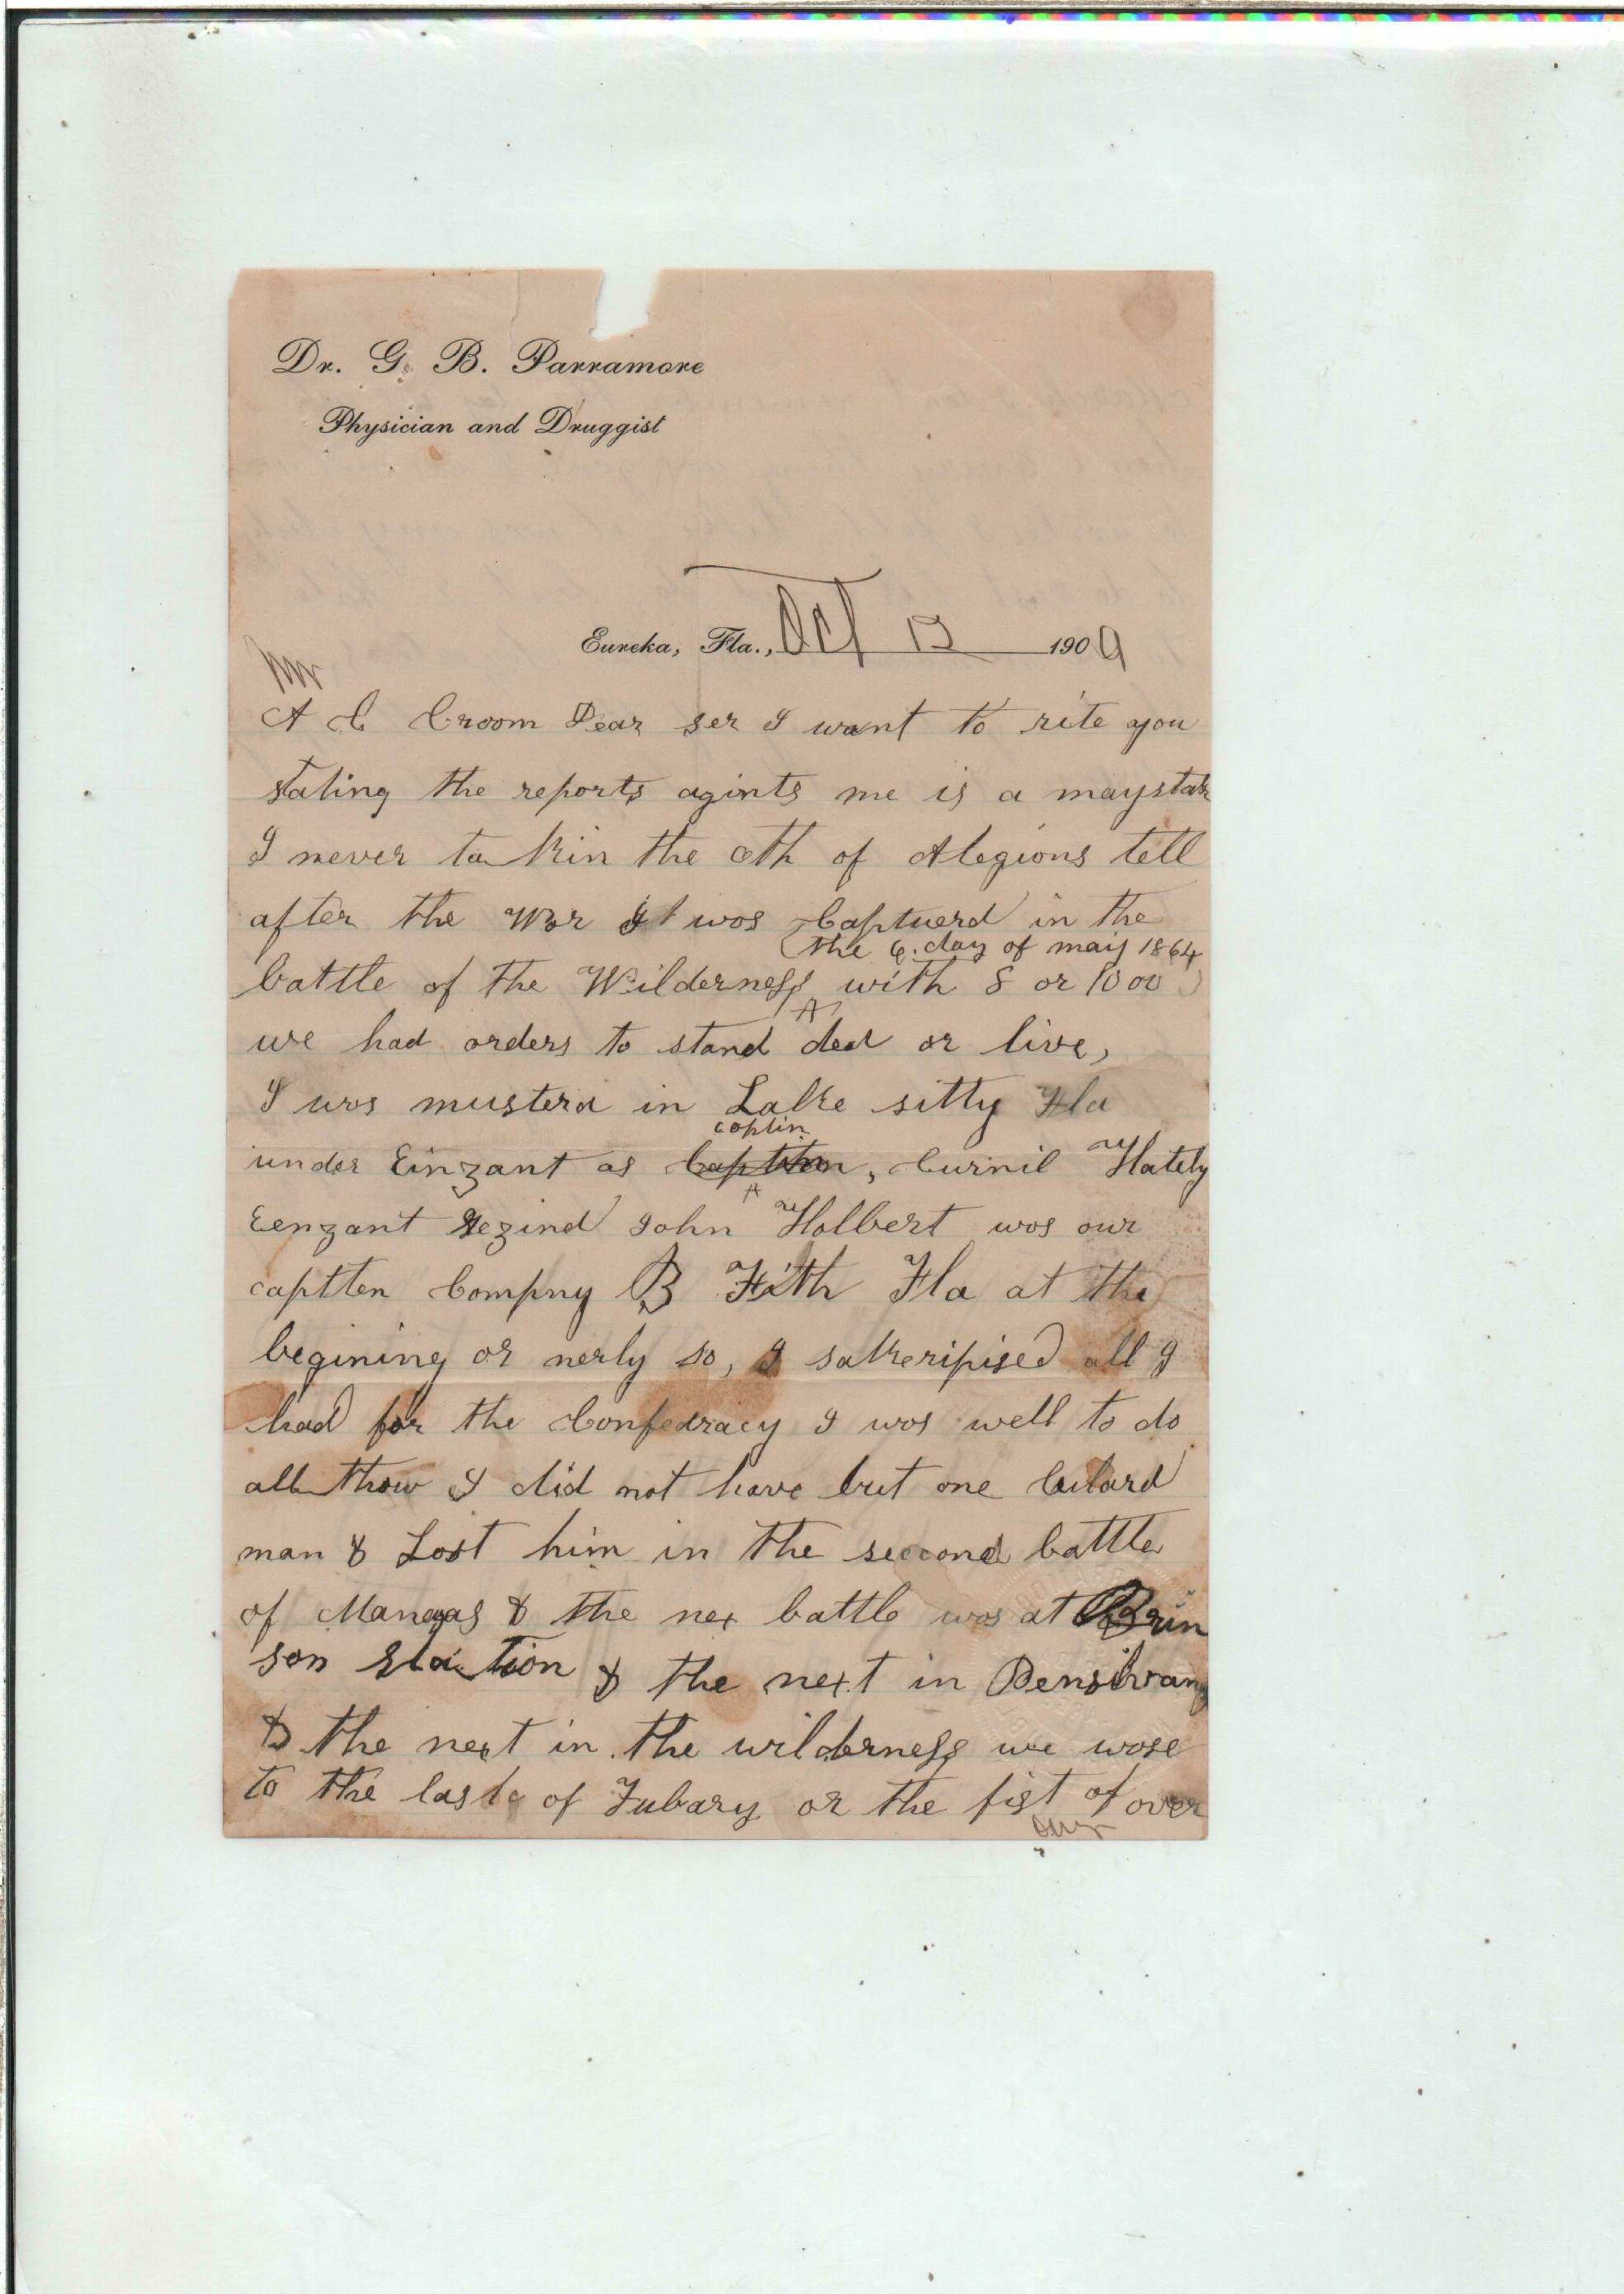 Dr. G. B. Parramore
Physician and Druggist
Eureka, Fla., Oct 12 1909
Mr
A C Croom Dear ser I want to rite you
stating the reports agints me is a maystak
I never takin the oth of Alegions tell
after the wor I wos Captuerd in the
the 6. day of maij 1864
battle of the Wilderness with 8 or 1000
we had orders to stand ded or live,
I wos musterd in Lake sitty Fla
coptin
under Einzant as Captten, Curnil Hately
Eenzant Rezind John Holbert wos our
captten Compny B Fith Fla at the
begining or nerly so, I sakeripised all I
had for the Confedracy I wos well to do
all thow I did not have but one Culard
man & Lost him in the second battle
of Manasas & the nex battle wos at Brin
son station & the next in Pensilvany
& the next in the wilderness we wore
to the last of Fubary or the fist of over
over